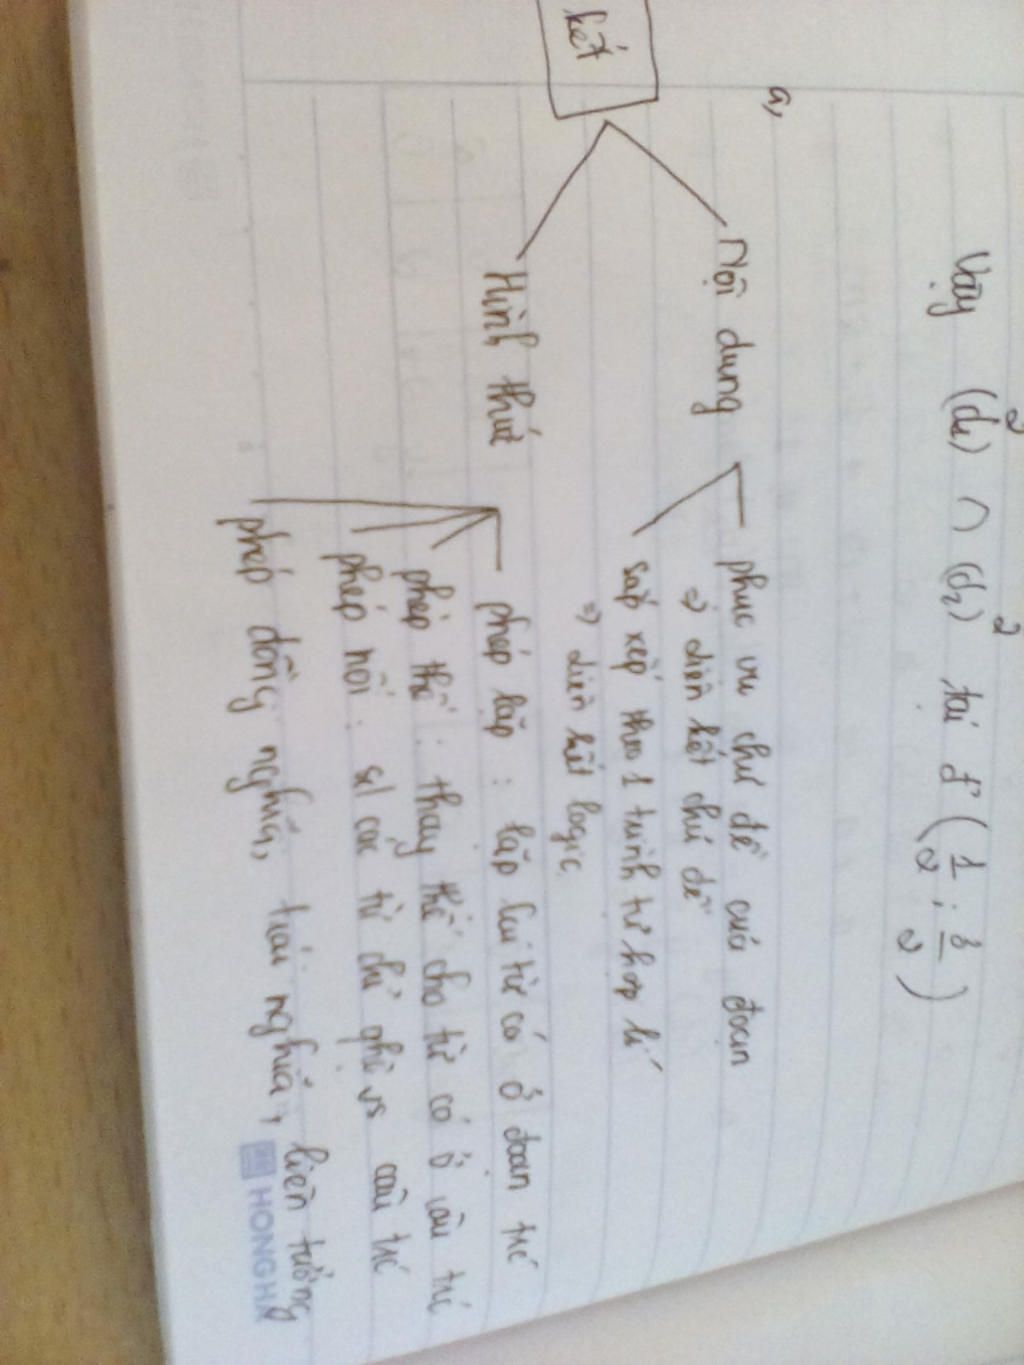 Vậy (d₁) ∩ (d₂) tại A (1/2; 3/2)
a,
kết
Nội dung
phục vụ chủ đề của đoạn
=> liên kết chủ đề
sắp xếp theo 1 trình tự hợp lí
=> liên kết logic
Hình thức
phép lặp : lặp lại từ có ở đoạn trc
phép thế : thay thế cho từ có ở câu trc
phép nối : sd các từ chỉ qhệ vs câu trc
phép đồng nghĩa, trái nghĩa, liên tưởng
HONG HA